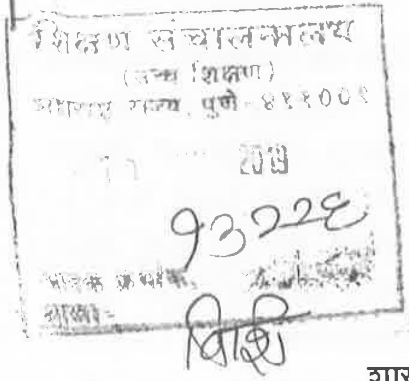 शिक्षण संचालनालय
(उच्च शिक्षण)
महाराष्ट्र राज्य, पुणे - ४११००१
2019
१३२२६
आवक क्रमांक
शाखा-
विशि
शास